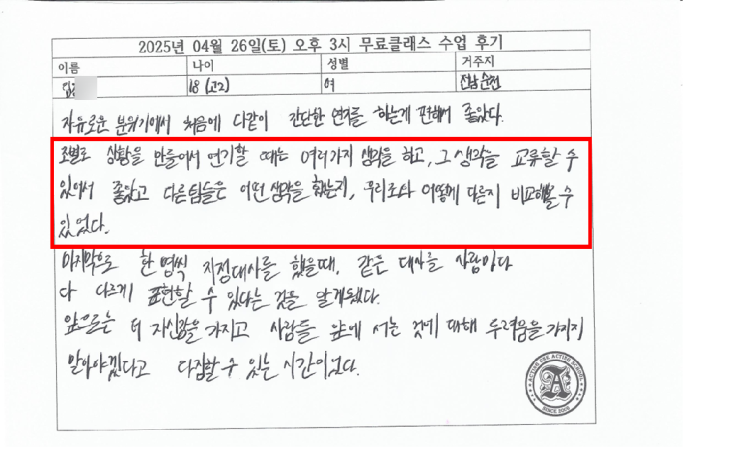 2025년 04월 26일(토) 오후 3시 무료클래스 수업 후기
이름 나이 성별 거주지
김 18 (고2) 여 전남 순천
자유로운 분위기에서 처음에 다같이 간단한 연기를 하는게 편해서 좋았다.
조별로 상황을 만들어서 연기할 때는 여러가지 생각을 하고, 그 생각을 교류할 수
있어서 좋았고 다른팀들은 어떤 생각을 했는지, 우리조와 어떻게 다른지 비교해볼 수
있었다.
마지막으로 한 명씩 지정대사를 했을때, 같은 대사를 사람마다
다 다르게 표현할 수 있다는 것을 알게됐다.
앞으로는 더 자신감을 가지고 사람들 앞에 서는 것에 대해 두려움을 가지지
말아야겠다고 다짐할 수 있는 시간이었다.
A
SINCE 2008